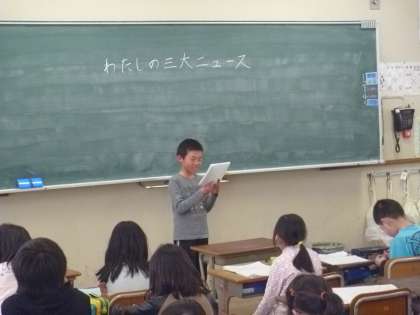 わたしの三大ニュース